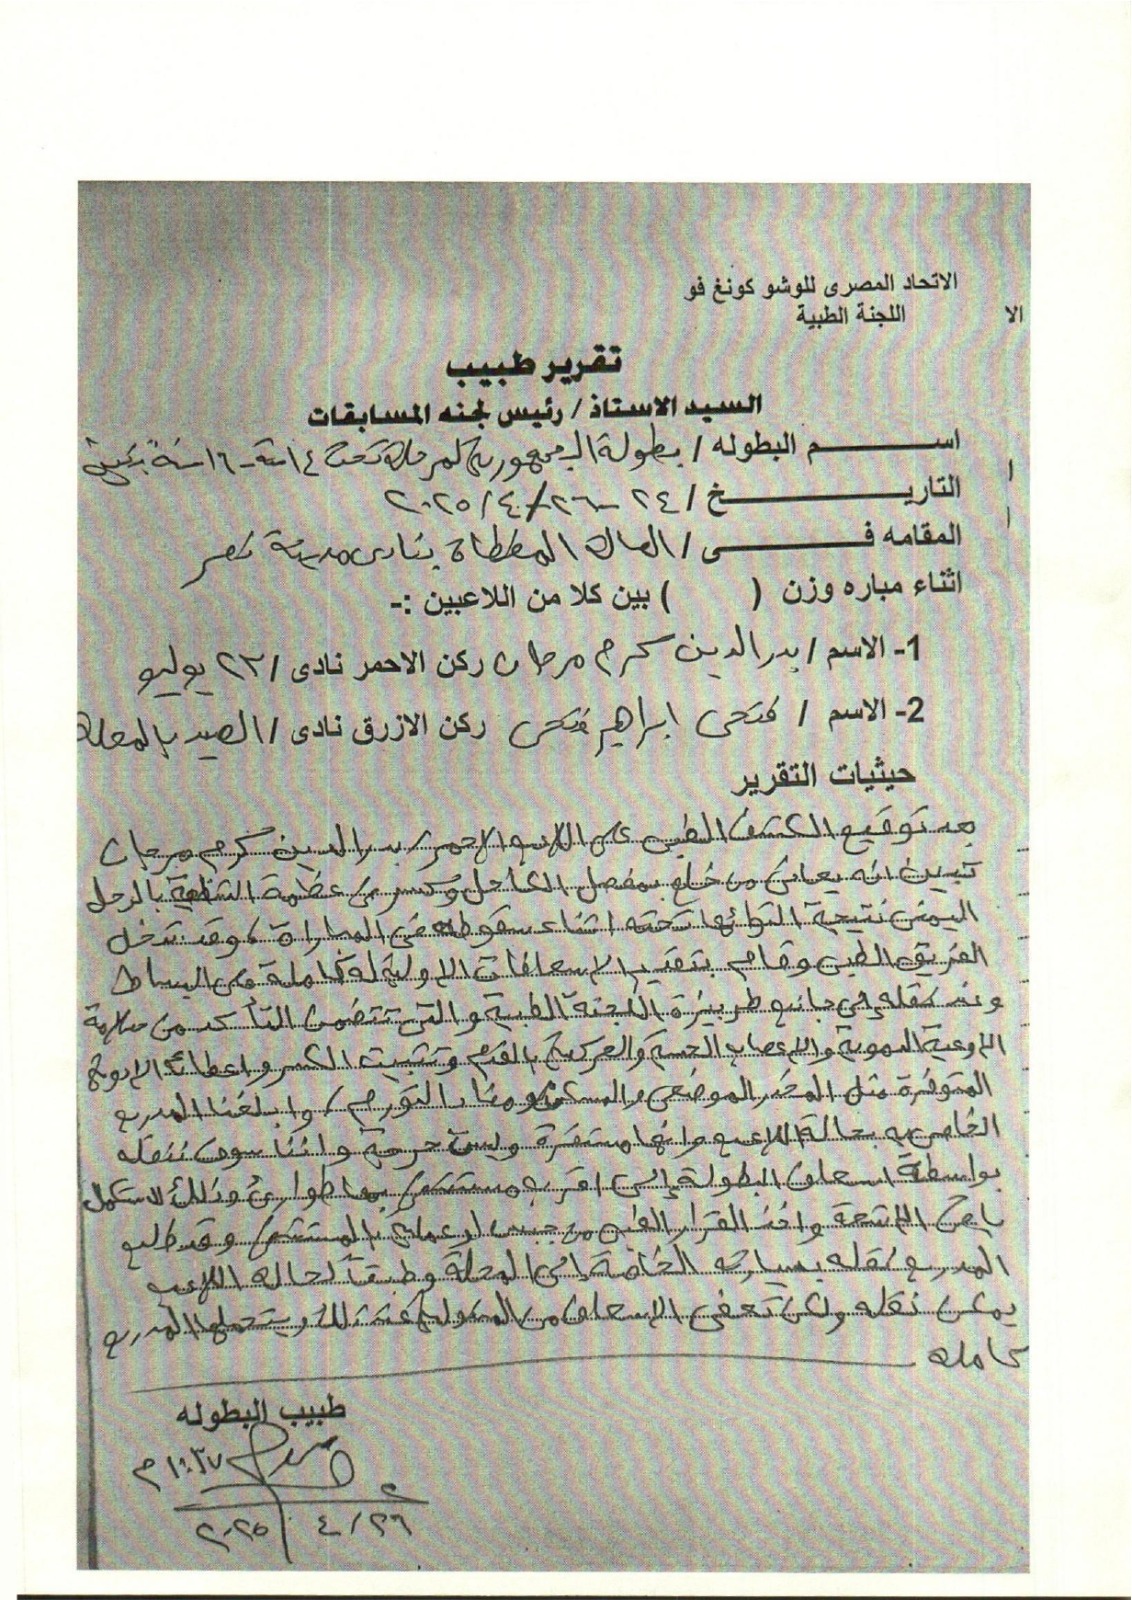 الاتحاد المصرى للوشو كونغ فو
اللجنة الطبية
الا
تقرير طبيب
السيد الاستاذ / رئيس لجنه المسابقات
اسم البطوله / بطولة الجمهورية لمرحلة تحت ١٤ سنة - ١٦ سنة
التاريخ / ٢٤ - ٢٦ / ٤ / ٢٠٢٥
المقامه فى / الصالة المغطاة بنادى مدينة نصر
اثناء مباره وزن ( ) بين كلا من اللاعبين :-
1- الاسم / بدر الدين كرم مرجان ركن الاحمر نادى / ٢٣ يوليو
2- الاسم / فتحى ابراهيم فتحى ركن الازرق نادى / الصيد بالمحلة
حيثيات التقرير
بعد توقيع الكشف الطبى على اللاعب الاحمر / بدر الدين كرم مرجان
تبين انه يعانى من خلع بمفصل الكاحل وكسر فى عظمة الشظية بالرجل
اليمنى نتيجة التوائها تحته اثناء سقوطه فى المباراة ، وقد تدخل
الفريق الطبى وقام بتقديم الاسعافات الاولية له كاملة على البساط
وعند نقله إلى جانب طربيزة اللجنة الطبية والتى تتضمن التأكد من سلامة
الاوعية الدموية والاعصاب الحسية والحركية بالقدم وتثبيت الكسر واعطائه الادوية
المتوفرة مثل المخدر الموضعى والمسكن ومضاد التورم ، وابلغنا المدرب
الخاص به بحالة اللاعب وانها مستقرة وليست حرجة واننا سوف ننقله
بواسطة اسعاف البطولة إلى اقرب مستشفى بها طوارئ وذلك لاستكمال
باقى الاشعة واخذ القرار الطبى من جبس او عملية بالمستشفى وقد طلب
المدرب نقله بسيارته الخاصة إلى المحلة وطبقاً لحالة اللاعب
يمكن نقله ولكن تعفى الاسعاف من المسئولية عند ذلك ويتحملها المدرب
كاملة
طبيب البطوله
١٠:٣٧ م
٢٦ / ٤ / ٢٠٢٥